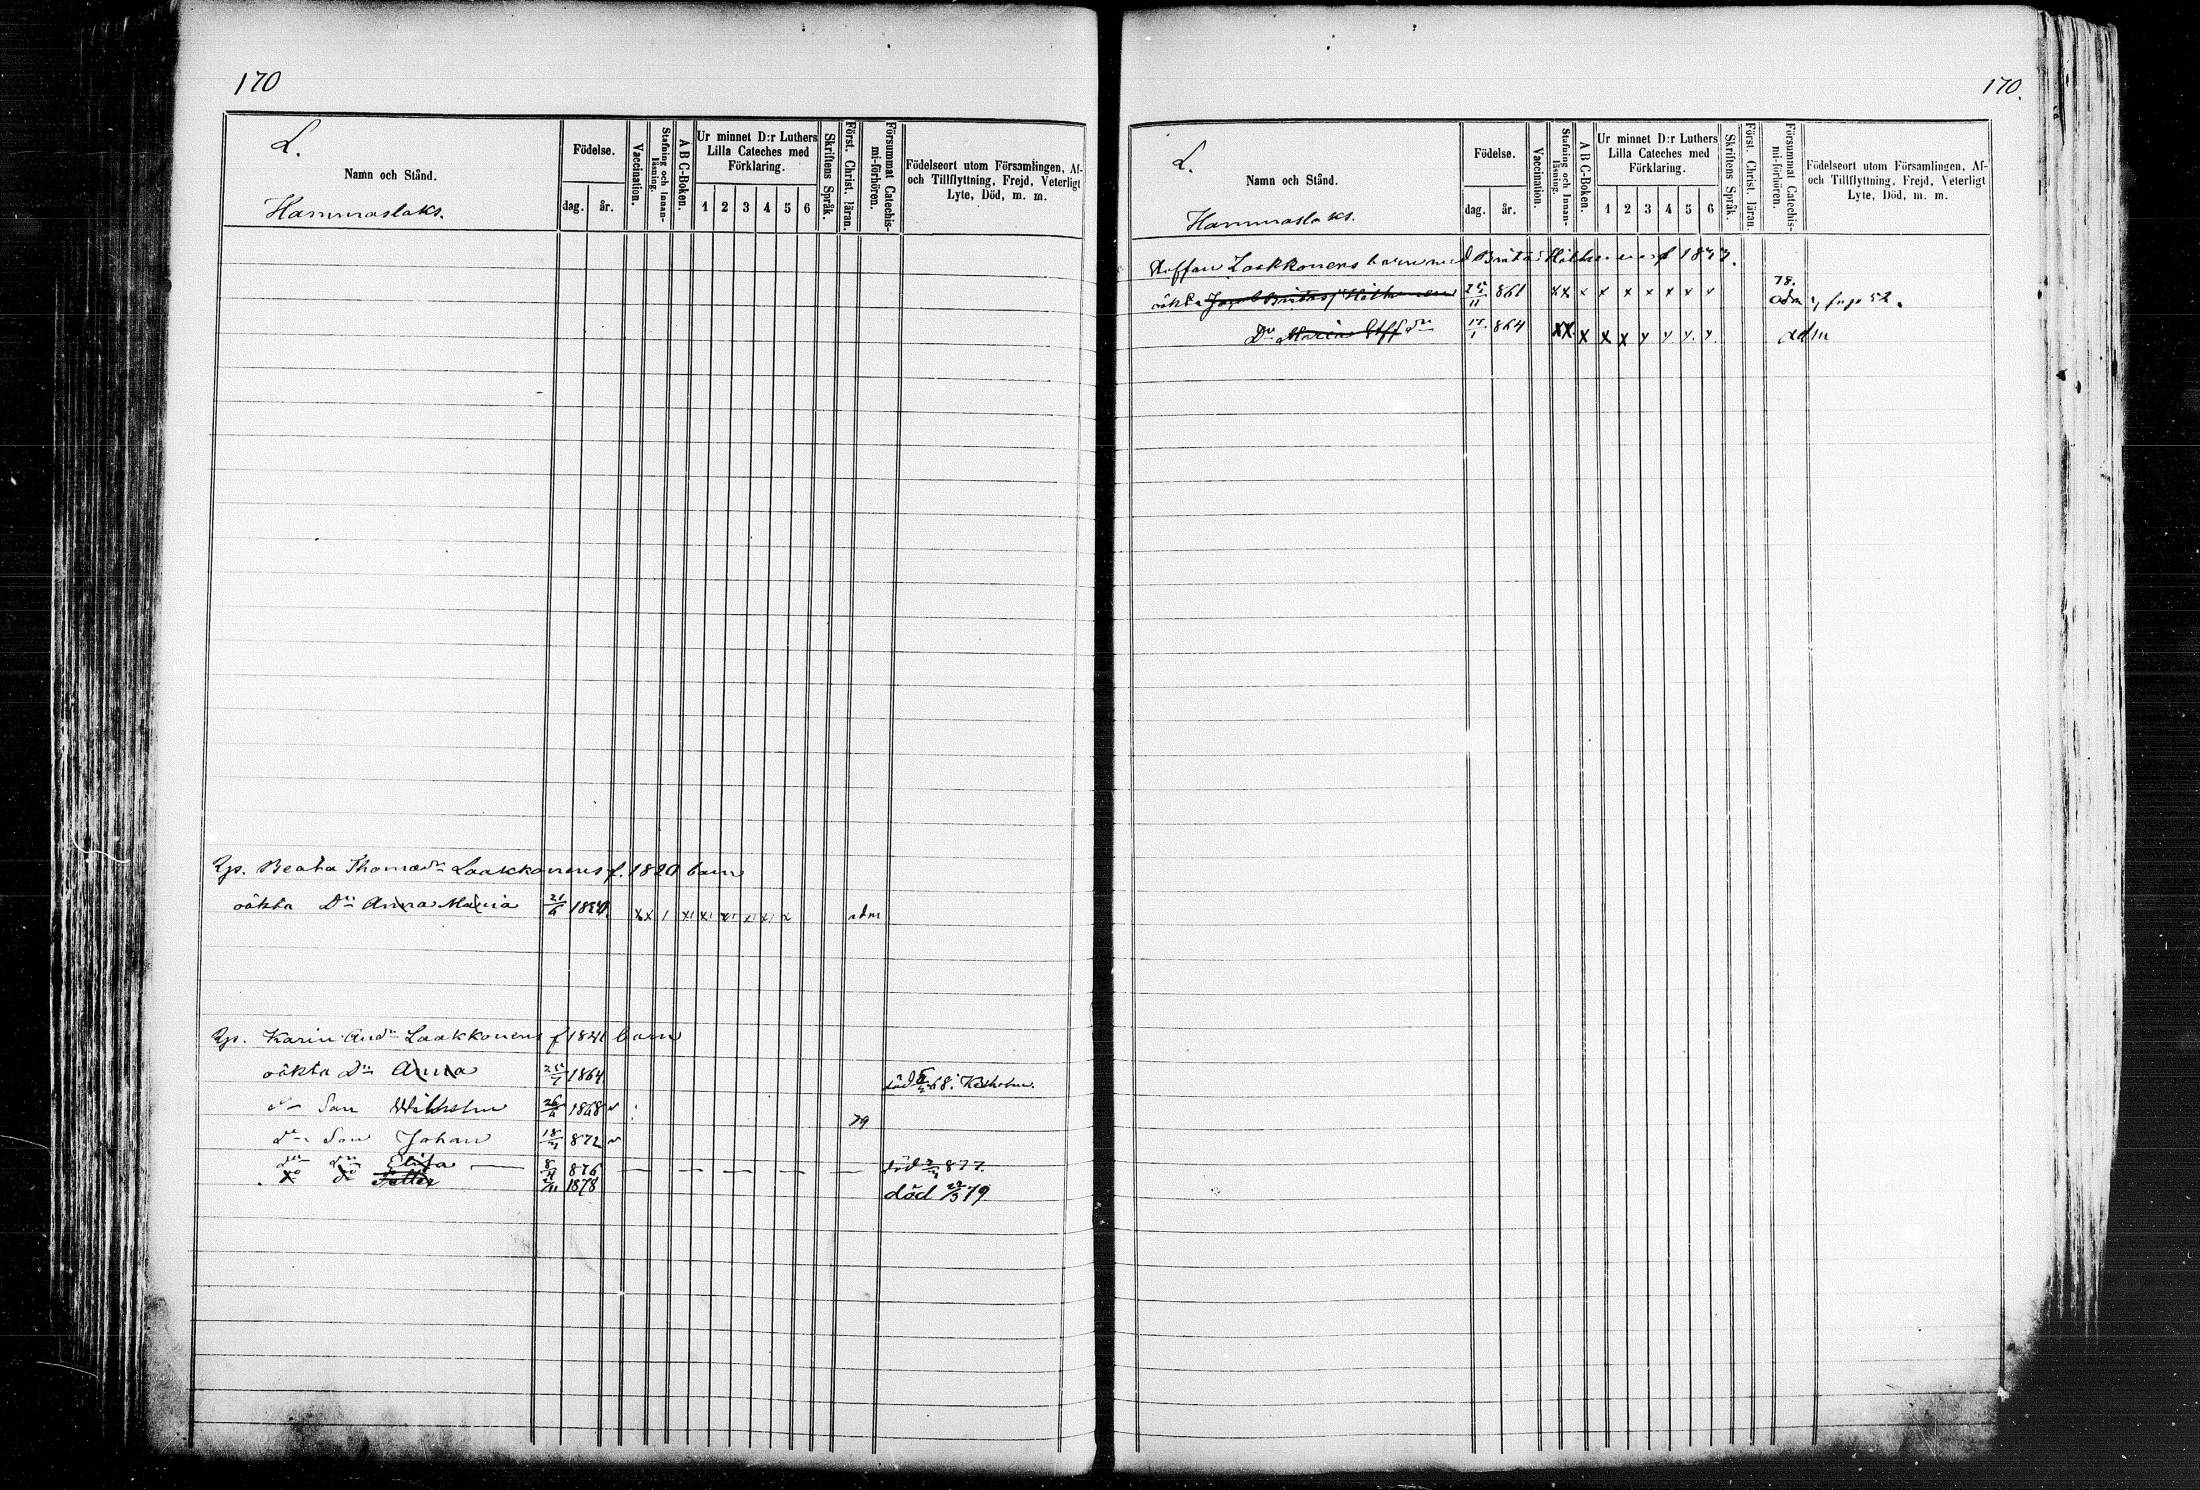 170
L.
Namn och Stånd.
Hammaslaks.
Födelse.
dag. år.
Vaccination.
Stafning och Innanläsning.
A B C-Boken.
Ur minnet D:r Luthers Lilla Cateches med Förklaring.
1 2 3 4 5 6
Skriftens Språk.
Först. Christ. läran.
Försummat Catechismi-förhören.
Födelseort utom Församlingen, Af- och Tillflyttning, Frejd, Veterligt Lyte, Död, m. m.
Beata Thomæd:r Laakkonens f. 1820 barn
oäkta D:r Anna Maria 21/6 x x 1 x1 x1 x1 x1 x1 x adm
Karin And:r Laakkonens f 1841 barn
oäkta D:r Anna 1864 död 68. Kexholm.
d:o Son Wilhelm 26/4 1868 79
d:o Son Johan 18/ 872
d:o d:o Elisa 8/ 876 död 877.
d:o 1878 död 22/3 79.
170.
L.
Namn och Stånd.
Hammaslaks.
Födelse.
dag. år.
Vaccination.
Stafning och Innanläsning.
A B C-Boken.
Ur minnet D:r Luthers Lilla Cateches med Förklaring.
1 2 3 4 5 6
Skriftens Språk.
Först. Christ. läran.
Försummat Catechismi-förhören.
Födelseort utom Församlingen, Af- och Tillflyttning, Frejd, Veterligt Lyte, Död, m. m.
Staffan Laakkonens barn med
78.
oäkta 25/11 861 x x x x x x x x x adm 52.
D:r Maria Staff d:r 17/1 864 x x x x x x x x x adm